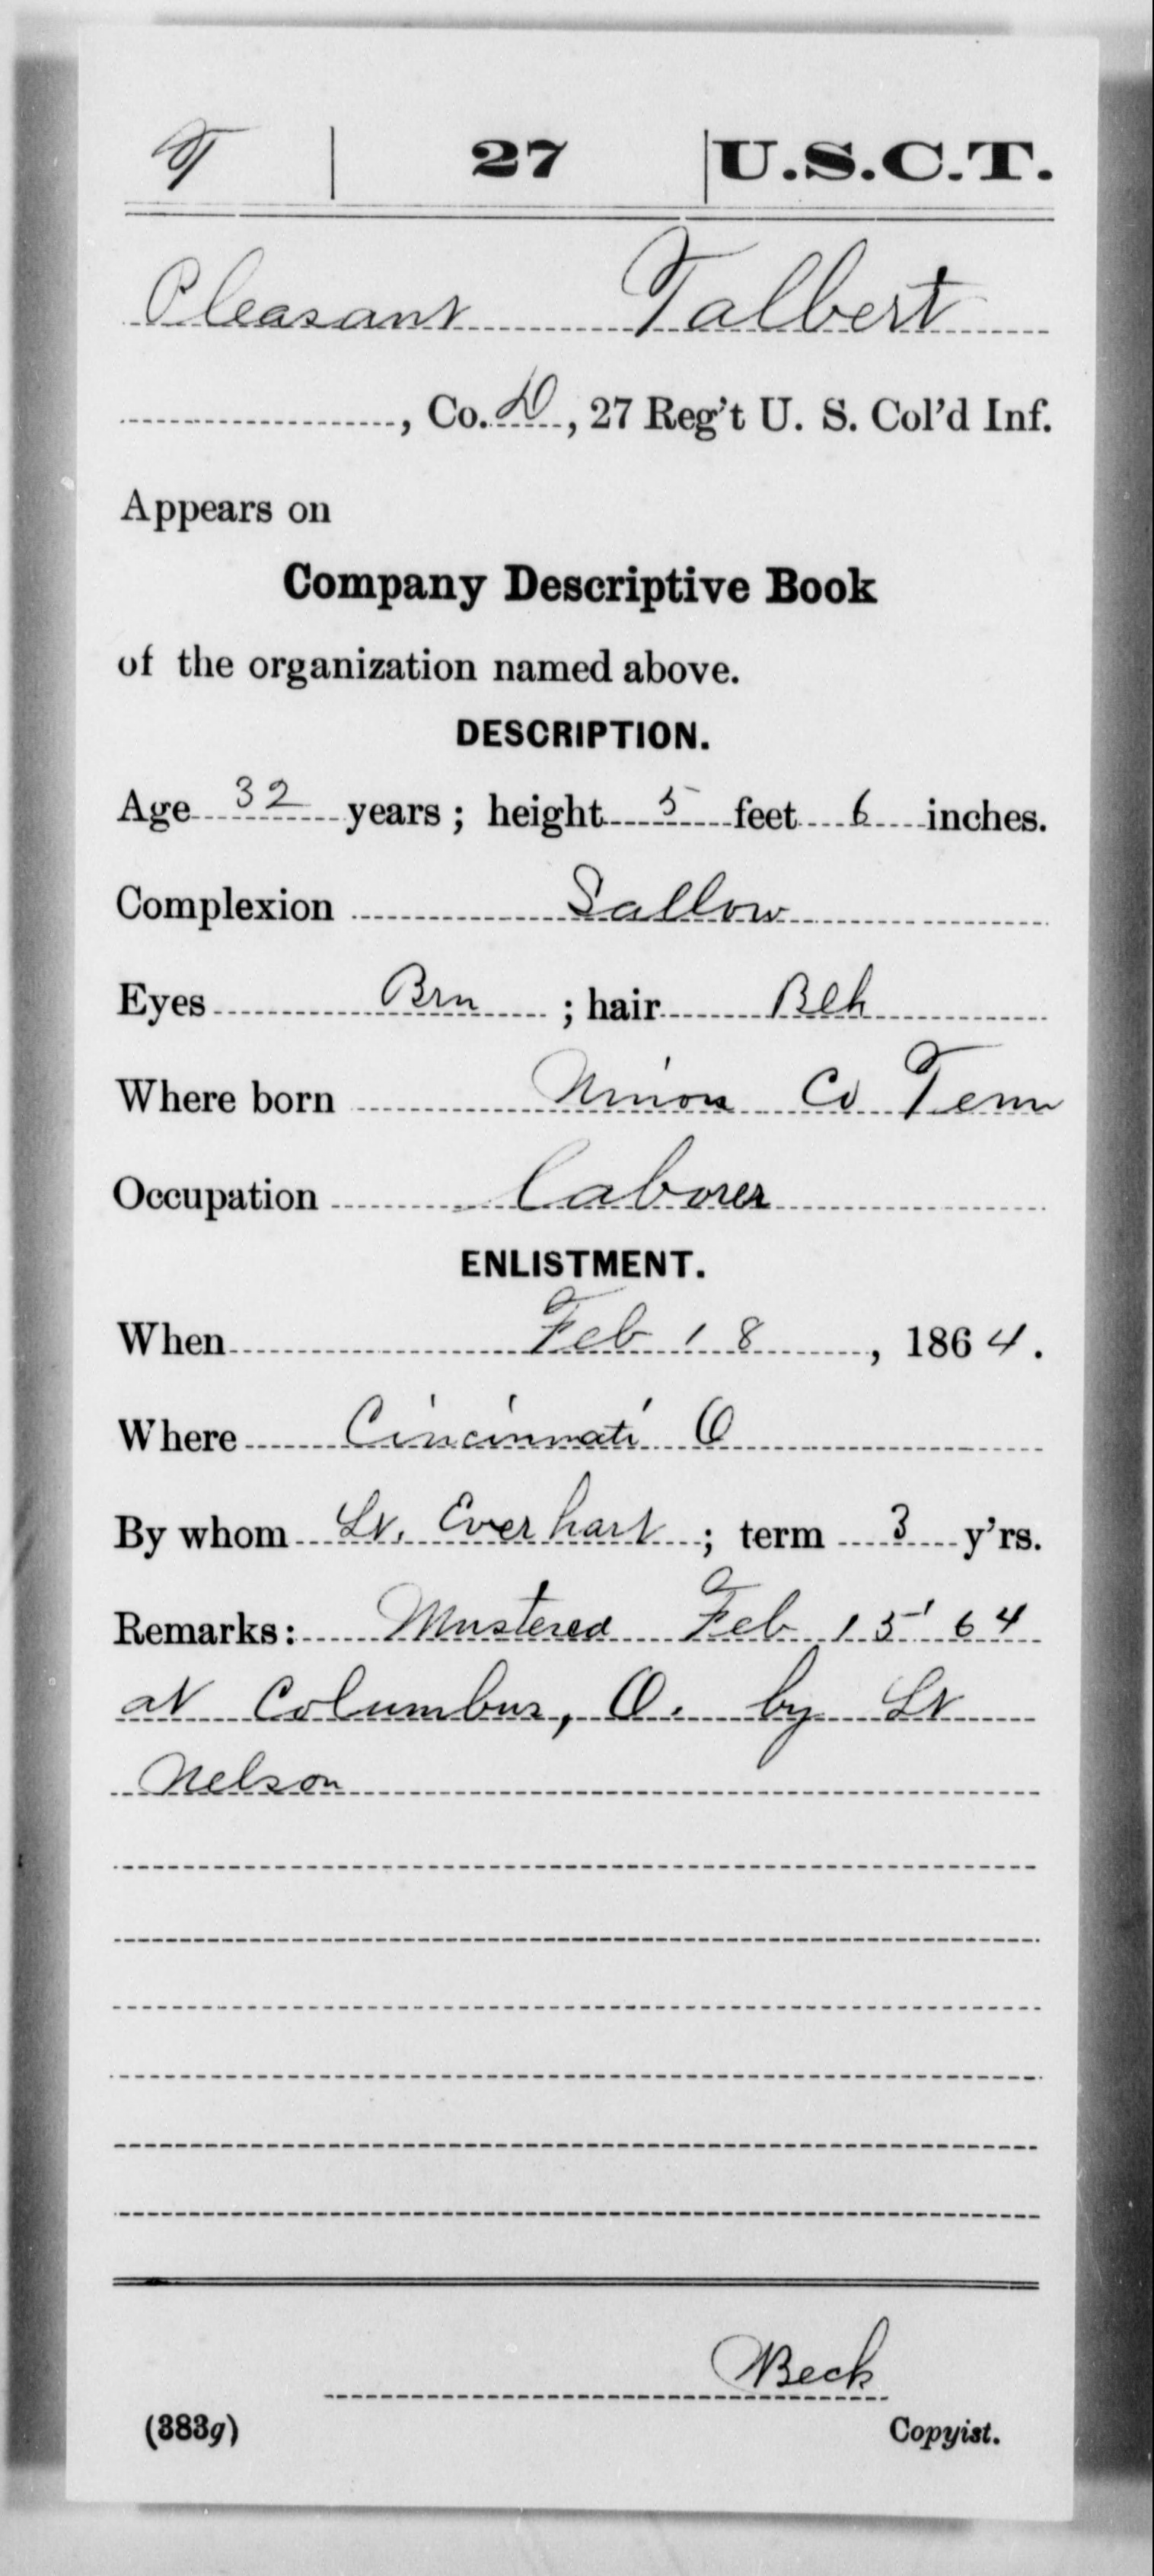 T | 27 | U.S.C.T.
Pleasant Talbert
, Co. D, 27 Reg't U. S. Col'd Inf.
Appears on
Company Descriptive Book
of the organization named above.
DESCRIPTION.
Age 32 years; height 5 feet 6 inches.
Complexion Sallow
Eyes Brn ; hair Blk
Where born Union Co Tenn
Occupation Laborer
ENLISTMENT.
When Feb 18, 1864.
Where Cincinnati O
By whom Lt. Everhart; term 3 y'rs.
Remarks: Mustered Feb 15 '64
at Columbus, O. by Lt
Nelson
Beck
(383g) Copyist.